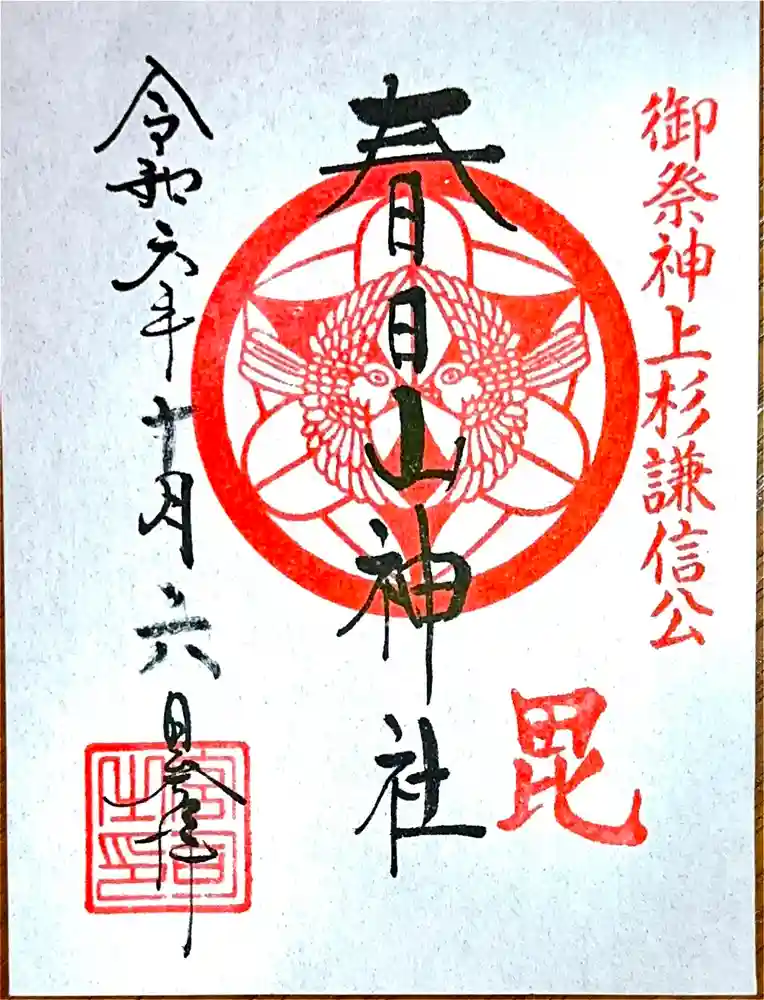 御祭神上杉謙信公
毘
春日山神社
令和六年十月六日参拝
宮司之印